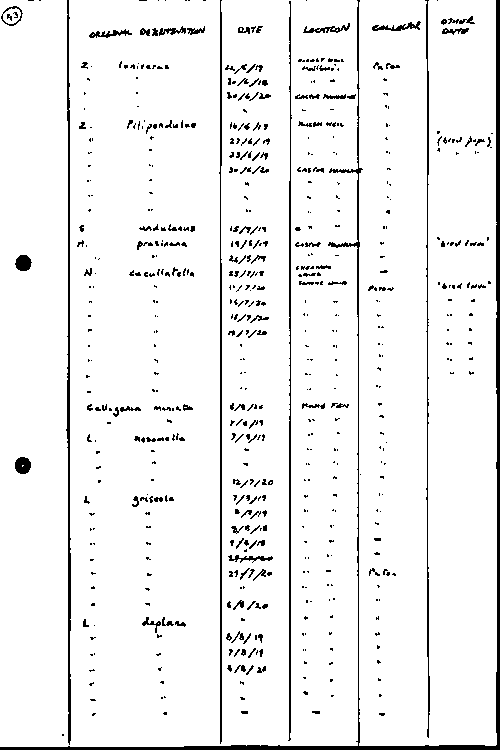 43
ORIGINAL DESIGNATION DATE LOCATION COLLECTOR OTHER DATA
Z. lonicerae 22/6/19 Paton
" " 30/6/18 " " "
" " 30/6/20 CASTOR HANGLANDS "
" " " "
Z. filipendulae 16/6/19 "
" " 27/6/19 " " " (bred pupa)
" " 23/6/19 " " " " "
" " 30/6/20 CASTOR HANGLANDS "
" " " " " "
" " " " " "
" " " " " "
S undulanus 15/7/19 "
H. prasinana 19/5/19 CASTOR HANGLANDS " "bred larva"
" " 26/5/19 " " "
N. cucullatella 23/7/19
" " 11/7/20 Paton "bred larva"
" " 14/7/20 " " " " "
" " 15/7/20 " " " " "
" " 18/7/20 " " " " "
" " " " " " " "
" " " " " " " "
" " " " " "
" " " " " "
Calligenia miniata 8/8/20 "
" " 7/8/19 " " "
L. mesomella 7/8/19 " " "
" " " " " "
" " " " " "
" " 12/7/20 " " "
L griseola 7/8/19 " " "
" " 8/8/19 " " "
" " 8/8/18 " " "
" " 9/8/18 " " "
" " " " "
" " 29/7/20 " " Paton
" " " " " "
" " 6/8/20 " " "
L. deplana " " "
" " 8/8/19 " " "
" " 7/8/19 " " "
" " 8/8/20 " " "
" " " " " "
" " " " " "
" " " " "